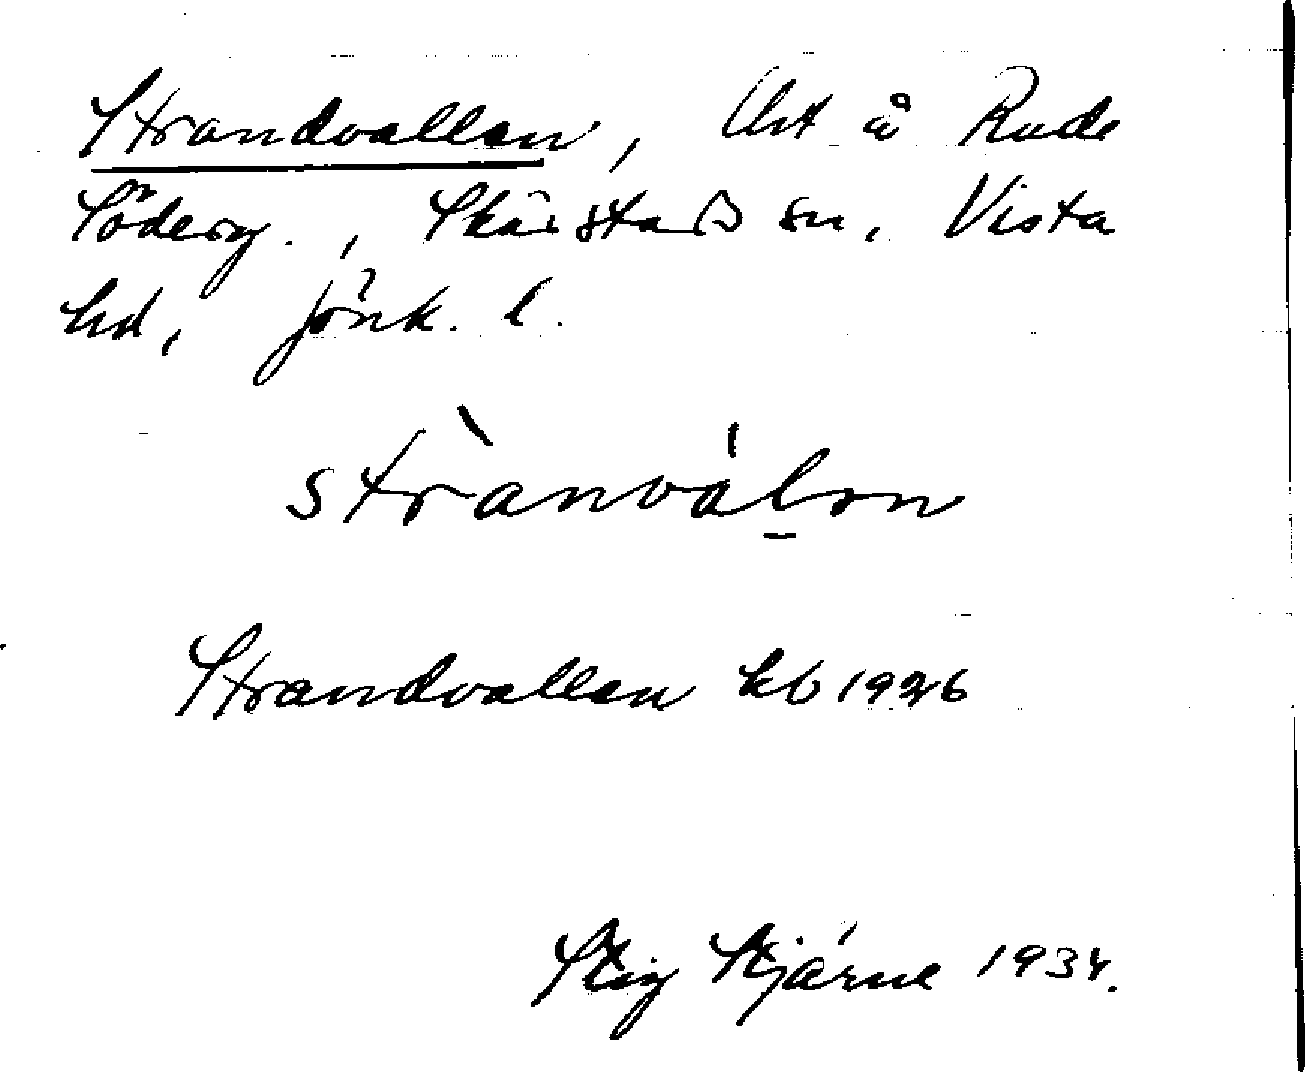 Strandvallen, Uht å Rude
Söderg., Skärstads sn, Vista
hd, Jönk. l.
strànválon
Strandvallen kb 1926
Stig Stjärne 1934.